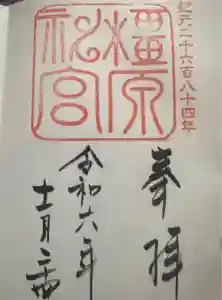 紀元二千六百八十四年
橿原
神宮
奉拝
令和六年
十一月